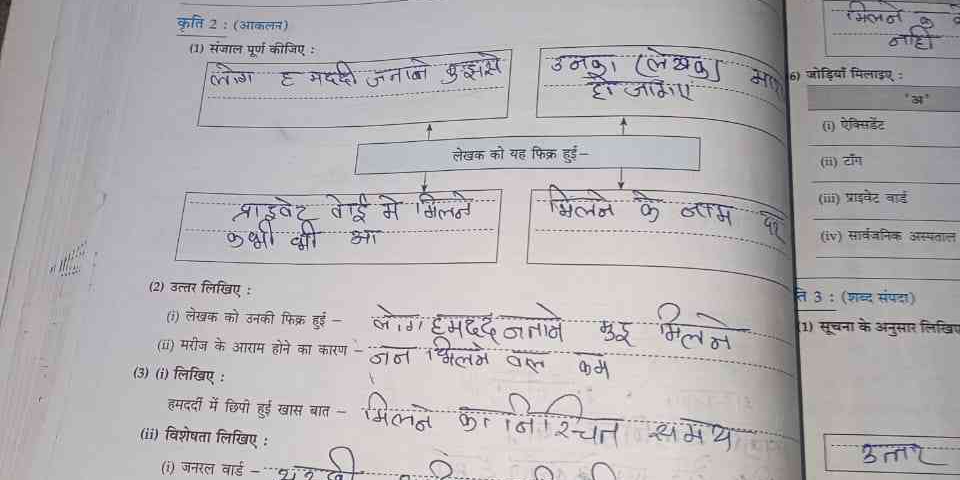 कृति 2 : (आकलन)
(1) संजाल पूर्ण कीजिए :
लोग ह मददी जनाने मुझसे
उनका (लेखक)
हो जागिए
लेखक को यह फिक्र हुई–
प्राइवेट वार्ड मे मिलने
कभी भी आ
मिलने के नाम पर
(2) उत्तर लिखिए :
(i) लेखक को उनकी फिक्र हुई – लोग हमदर्द जताने मुझ मिलने
(ii) मरीज के आराम होने का कारण – मिलने वाल कम
(3) (i) लिखिए :
हमदर्दी में छिपी हुई खास बात – मिलने का निश्चित समय
(ii) विशेषता लिखिए :
(i) जनरल वार्ड –
मिलने
नही
6) जोड़ियाँ मिलाइए :
'अ'
(i) ऐक्सिडेंट
(ii) टाँग
(iii) प्राइवेट वार्ड
(iv) सार्वजनिक अस्पताल
ति 3 : (शब्द संपदा)
1) सूचना के अनुसार लिखिए
उत्तर